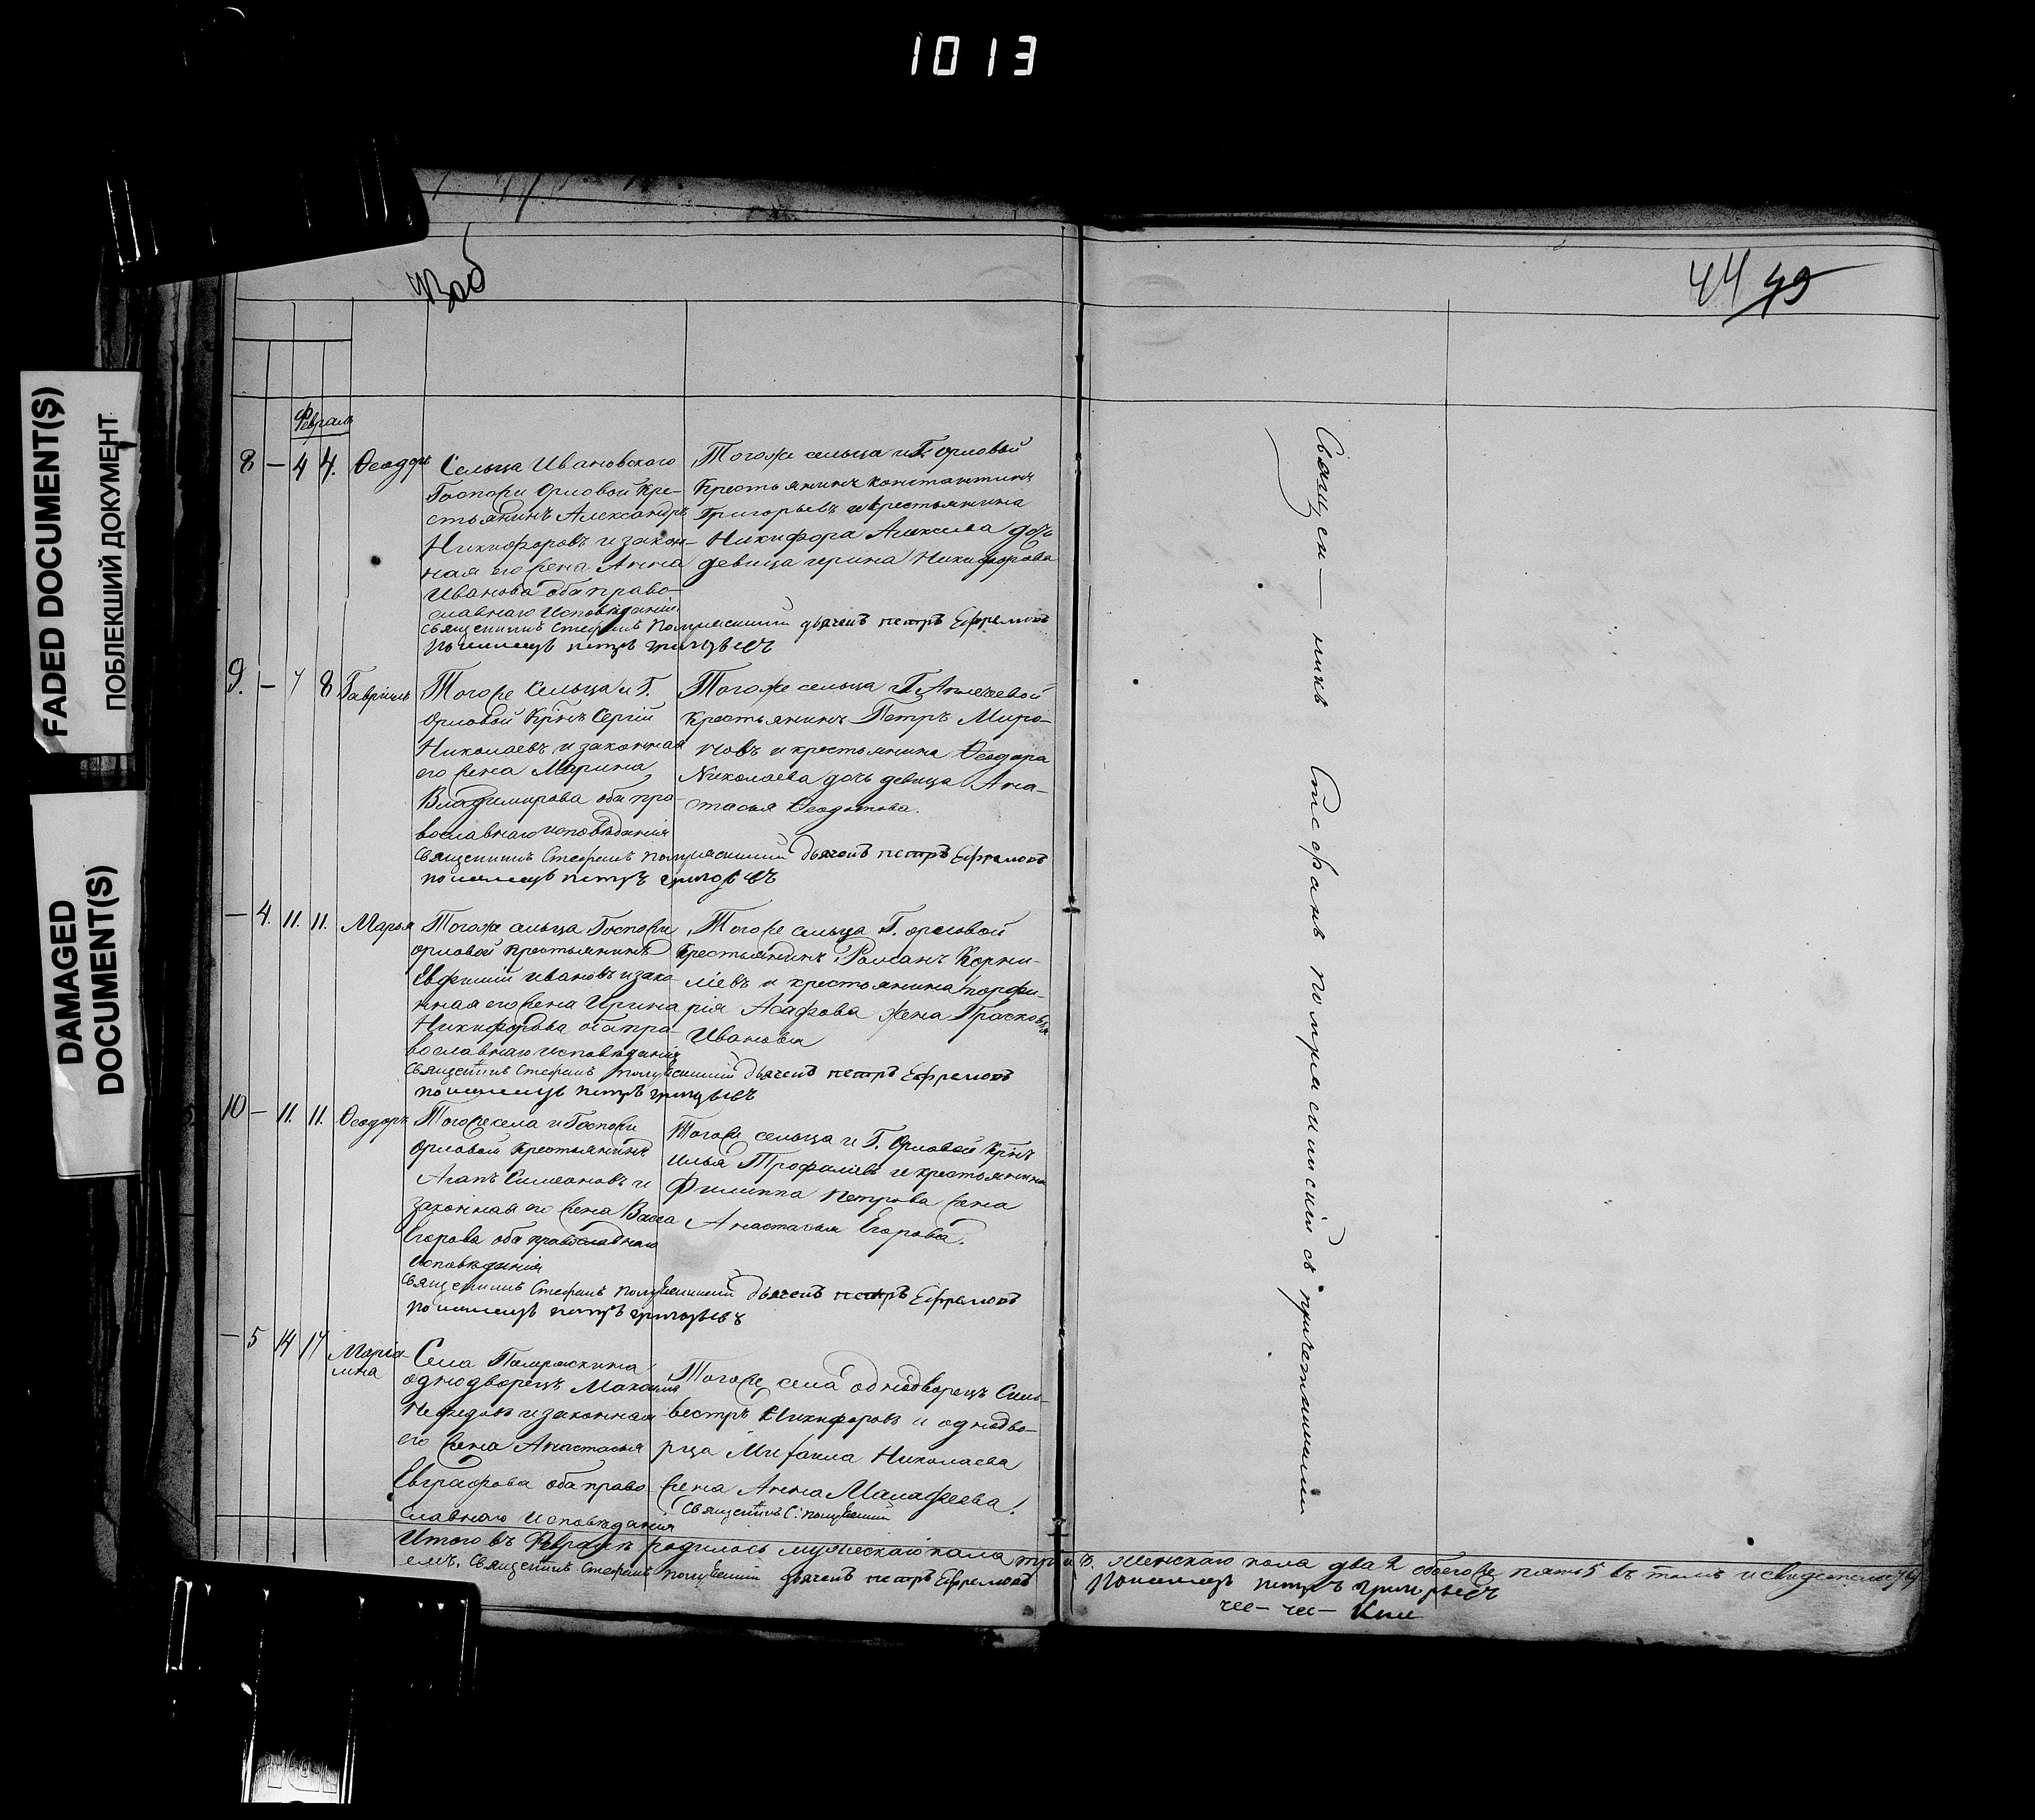 1013
FADED DOCUMENT(S)
ПОБЛЕКШИЙ ДОКУМЕНТ
DAMAGED
DOCUMENT(S)
44 49
Февраль
8 — 4 4. Ѳеодоръ
Сельца Ивановскаго
Госпожи Орловой кре-
стьянинъ Александръ
Никифоровъ и закон-
ная его жена Анна
Иванова оба право-
славнаго исповѣданія
Тогоже сельца и Г. Орловой
крестьянинъ Константинъ
Григорьевъ и крестьянина
Никифора Алексѣева дочь
девица Ирина Никифорова
Священникъ Стефанъ дьячекъ петръ Ефремовъ
пономарь петръ григорьевъ
9. — 7 8 Гавріилъ
Тогоже сельца и Г.
Орловой Крⷭ҇нъ Сергій
Николаевъ и законная
его жена Марина
Владимирова оба пра-
вославнаго исповѣданія
Тогоже сельца и Г.
крестьянинъ Петръ Миро-
новъ и крестьянина Ѳеодора
Николаева дочь девица Ана-
стасья
Священникъ Стефанъ дьячекъ петръ Ефремовъ
пономарь петръ григорьевъ
— 4. 11. 11. Марья
Тогоже сельца Госпожи
Орловой крестьянинъ
Евфимій Ивановъ и зако-
нная его жена Ирина
Никифорова оба пра-
вославнаго исповѣданія
Тогоже сельца Г. Орловой
крестьянинъ Романъ Корни-
ліевъ и крестьянина Порфи-
рія Асафова жена Прасковья
Иванова
Священникъ Стефанъ дьячекъ петръ Ефремовъ
пономарь петръ григорьевъ
10 — 11. 11. Ѳеодоръ
Тогоже села и Госпожи
Орловой крестьянинъ
Агапъ Симеоновъ и
законная его жена Васса
Егорова оба православнаго
исповѣданія
Тогоже сельца и Г. Орловой Крⷭ҇нъ
Илья Трофимовъ и крестьянина
Филиппа Петрова жена
Анастасья Егорова.
Священникъ Стефанъ дьячекъ петръ Ефремовъ
пономарь петръ григорьевъ
— 5 14 17 Маріа-
мна
Села
однодворецъ Максимъ
и законная
его жена Анастасья
Евграфова оба право
славнаго исповѣданія
Тогоже села однодворецъ Силь-
вестръ Никифоровъ и однодво-
рца Михаила Николаева
жена Анна Малафеева
Итого въ Февралѣ родилось мужескаго пола три 3. женскаго пола два 2 обоегоже пять 5 въ томъ и свидетельству
емъ. Священникъ Стефанъ дьячекъ петръ Ефремовъ
пономарь петръ григорьевъ
Священ— никъ Стефанъ съ причетниками